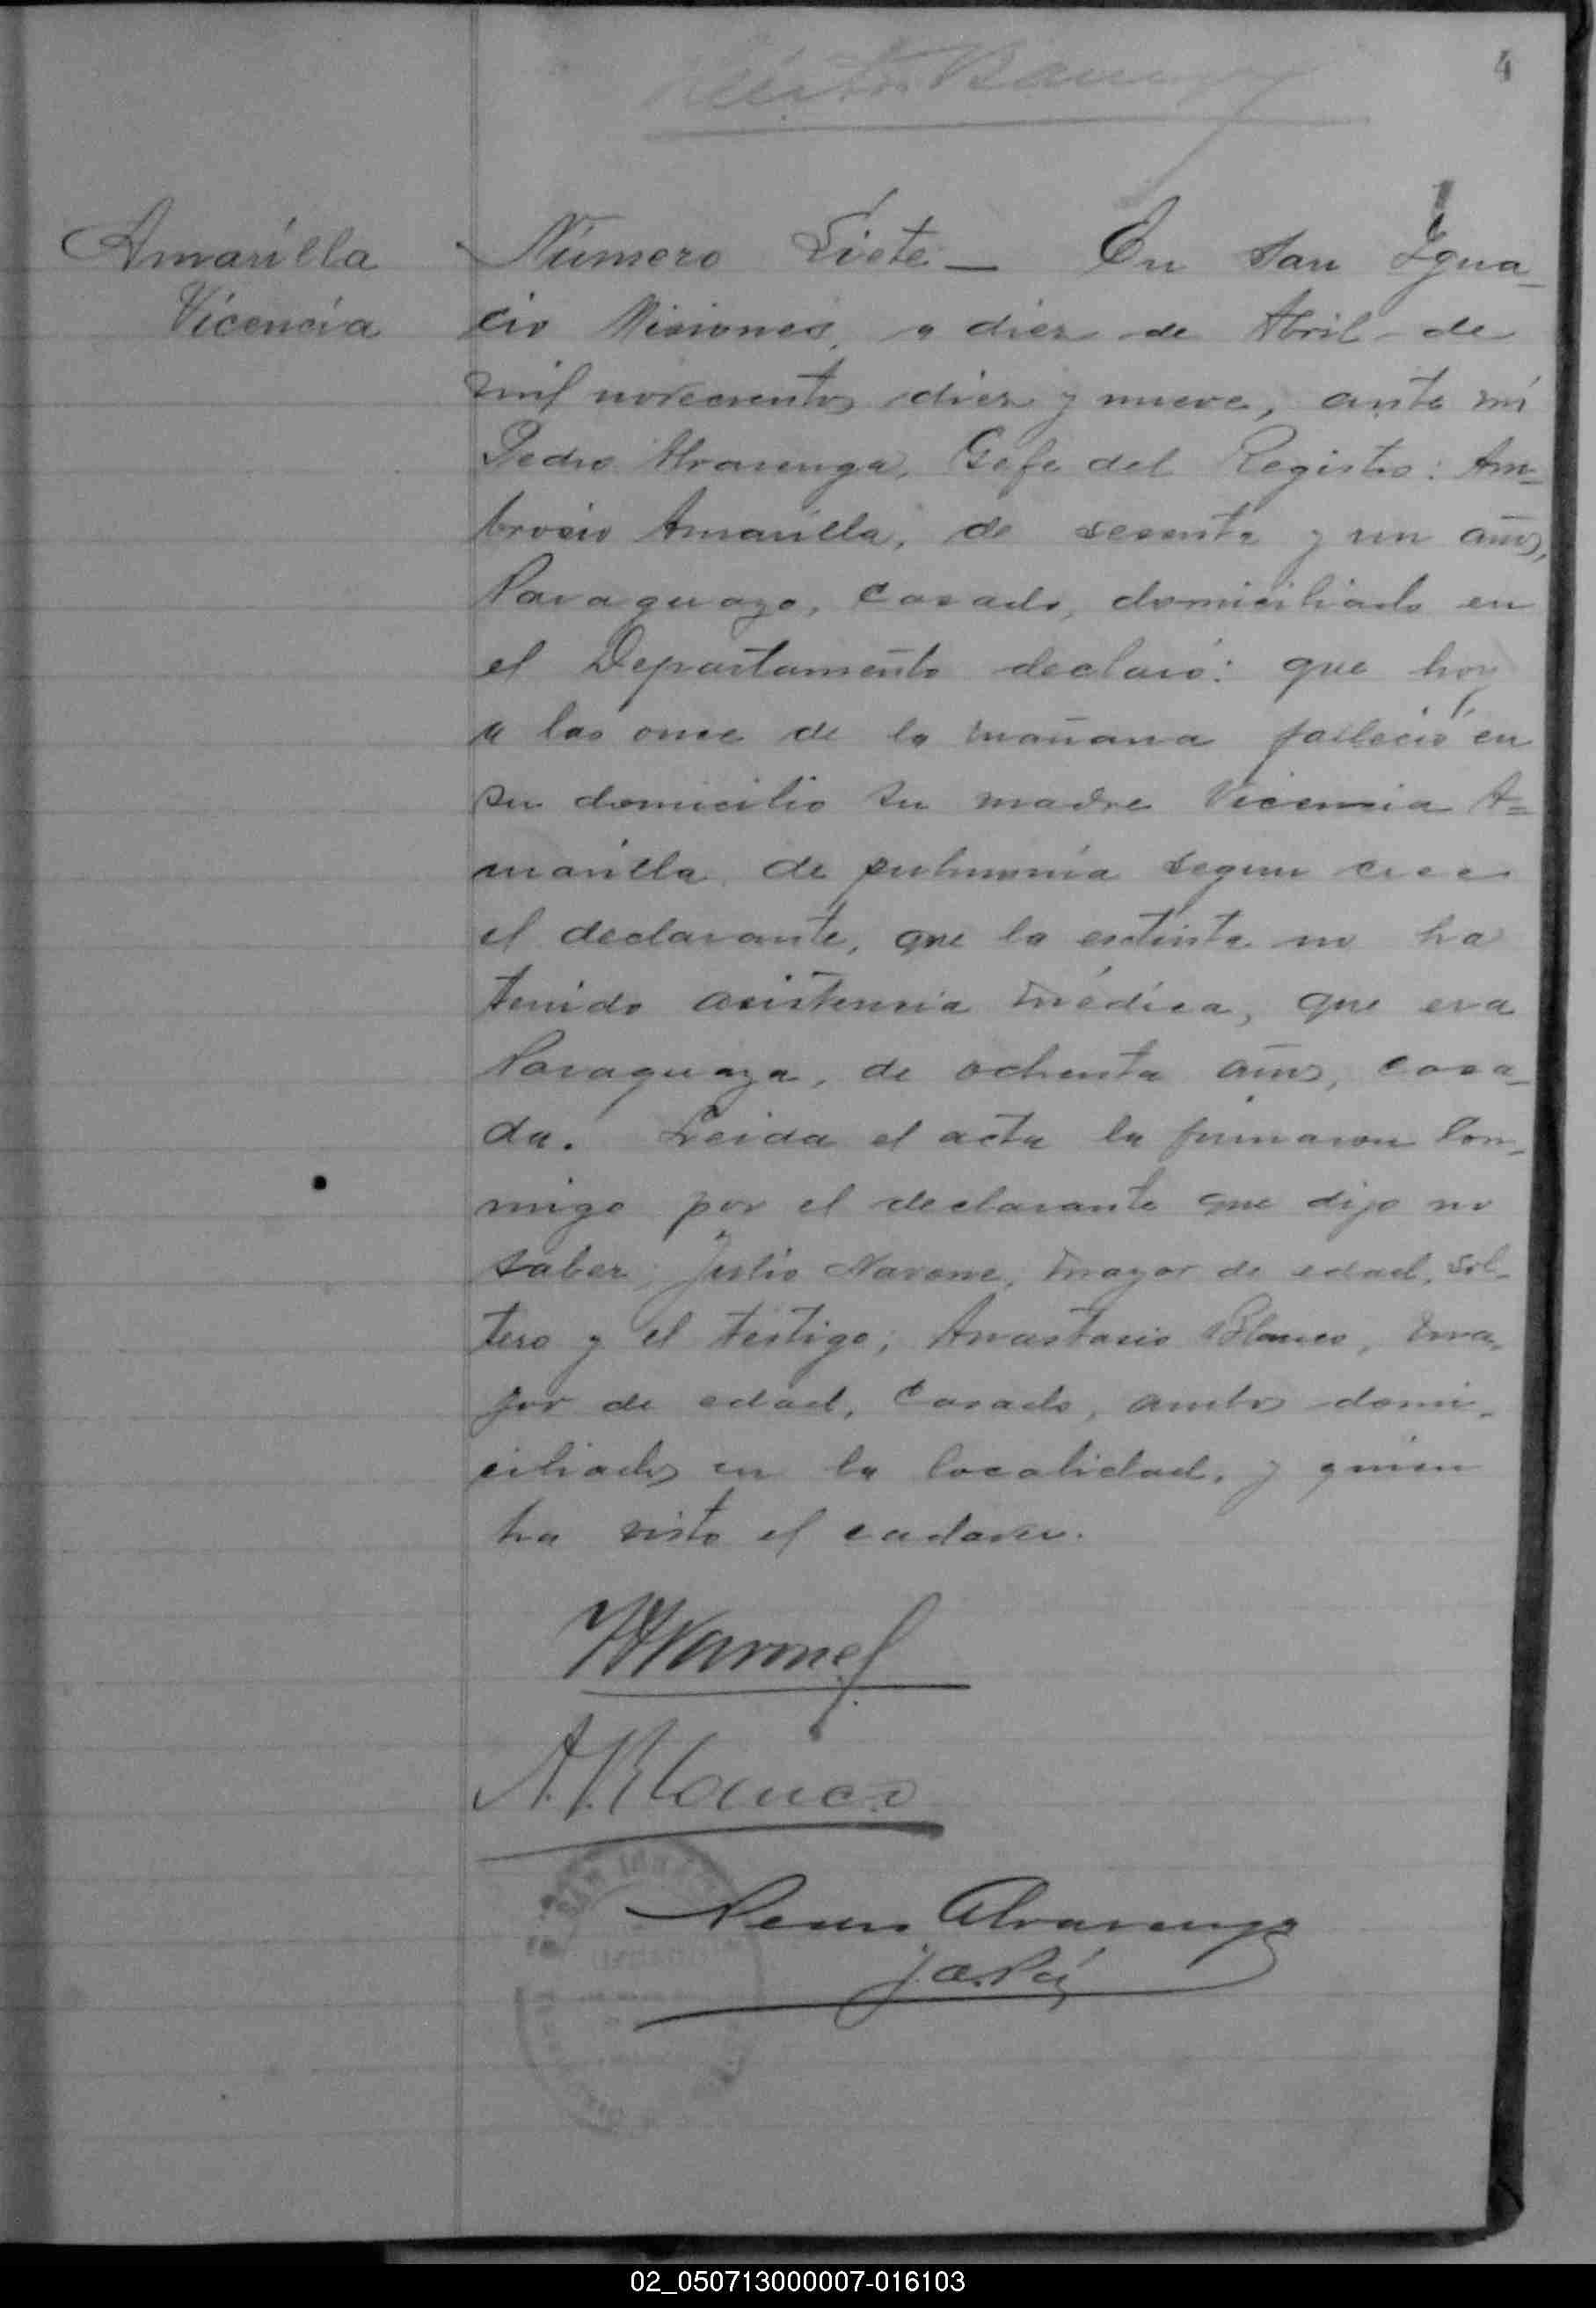 4
Amarilla
Vicencia
Número Siete — En San Igna-
cio Misiones, a diez de Abril de
mil novecientos diez y nueve, ante mí
Pedro Alvarenga, Gefe del Registro: Am-
brosio Amarilla, de sesenta y un años,
Paraguayo, Casado, domiciliado en
el Departamento declaró: que hoy
a las once de la mañana falleció en
su domicilio su madre Vicencia A=
marilla de pulmonía segun cree
el declarante, que la extinta no ha
tenido asistencia médica, que era
Paraguaya, de ochenta años, casa-
da. Leida el acta la firmaron con-
migo por el declarante que dijo no
saber, Julio Navone, mayor de edad, sol-
tero y el testigo; Anastasio Blanco, ma-
yor de edad, Casado, ambos domi-
ciliados en la localidad, y quien
ha visto el cadaver.
JNavone
A. Blanco
Alvarenga
02_050713000007-016103